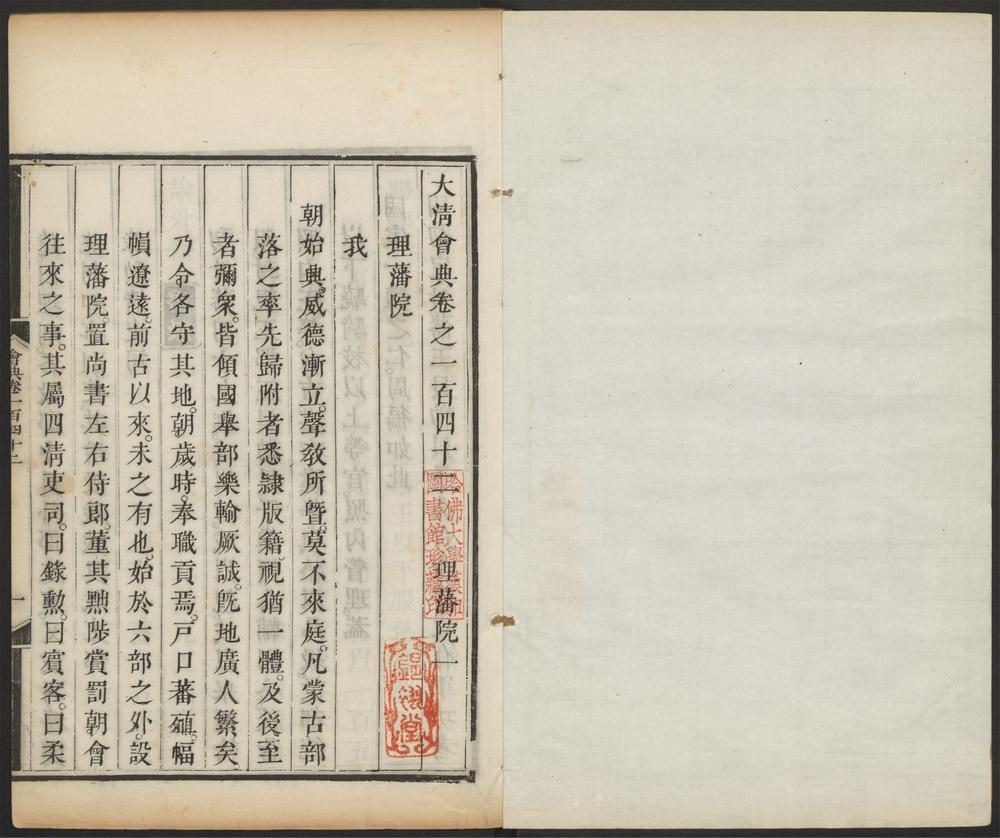 大淸會典卷之一百四十二　理藩院一
理藩院
我
朝始興。威德漸立。聲敎所曁。莫不來庭。凡蒙古部
落之率先歸附者。悉隷版籍。視猶一體。及後至
者彌衆。皆傾國舉部樂輸厥誠。旣地廣人繁矣
乃令各守其地。朝歲時。奉職貢焉。戸口蕃殖。幅
幀遼遠。前古以來。未之有也。始於六部之外。設
理藩院。置尚書左右侍郎。董其黜陟賞罰朝會
往來之事。其屬四淸吏司。曰錄勲。曰賓客。曰柔
會典卷一百四十二
一
哈佛大學漢和
圖書館珍藏印